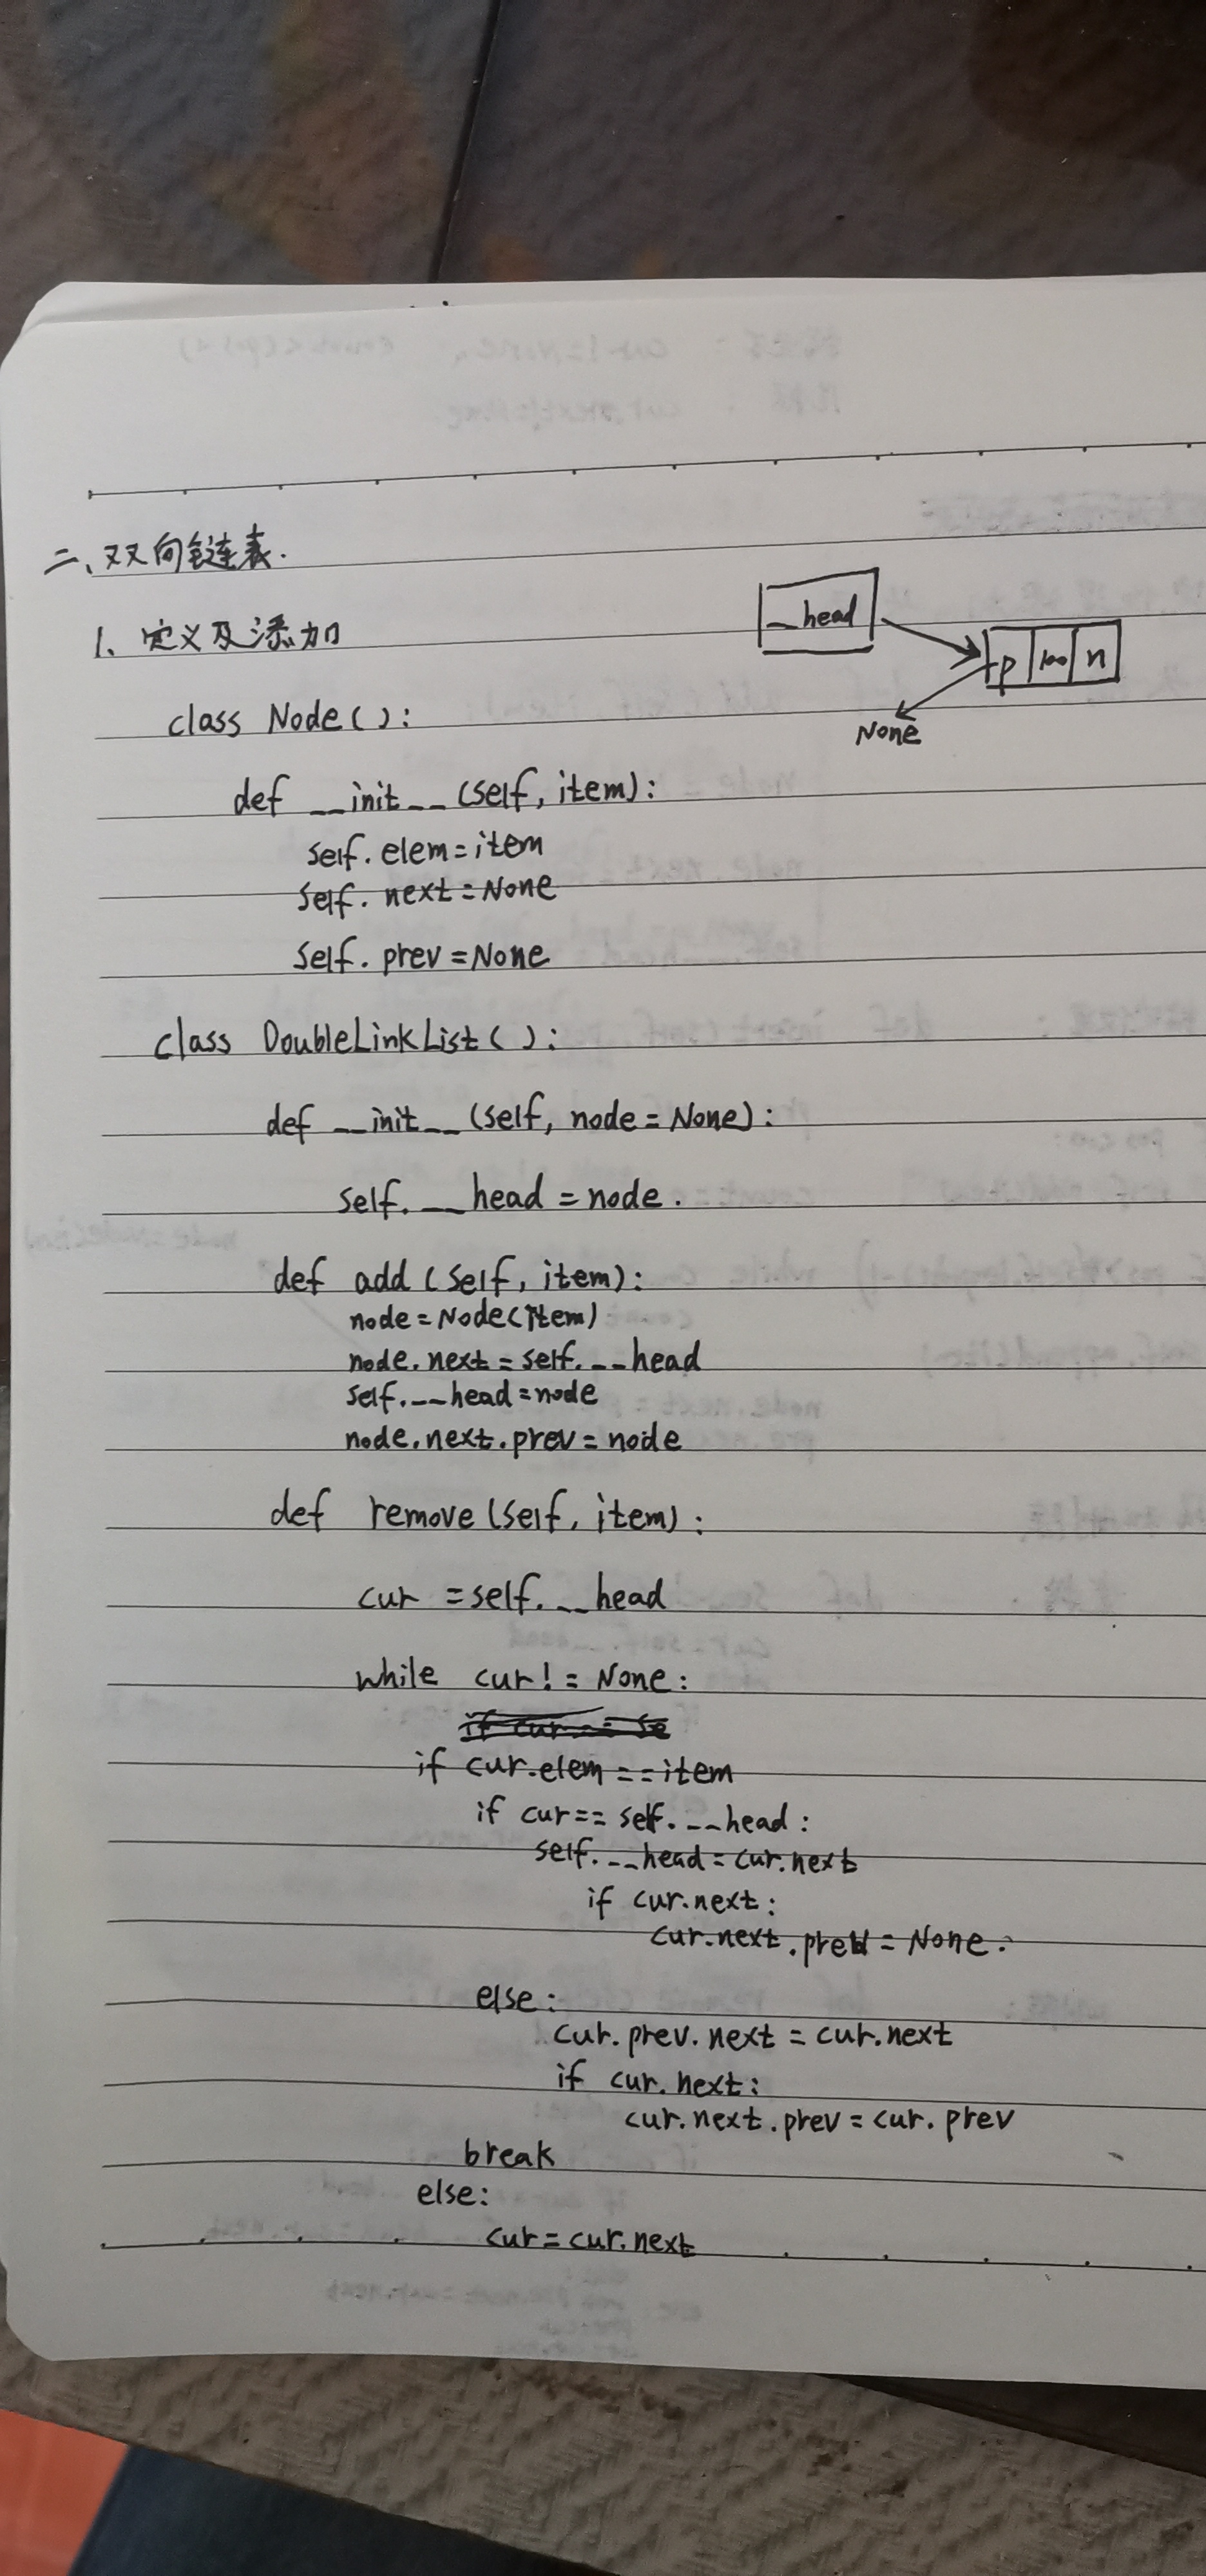 二、双向链表.
1、定义及添加
__head
p 100 n
None
class Node():
def __init__(self, item):
self.elem=item
self.next=None
self.prev=None
class DoubleLinkList():
def __init__(self, node=None):
self.__head=node.
def add(self, item):
node=Node(item)
node.next=self.__head
self.__head=node
node.next.prev=node
def remove(self, item):
cur=self.__head
while cur!=None:
if cur.elem==item
if cur==self.__head:
self.__head=cur.next
if cur.next:
cur.next.prev=None.
else:
cur.prev.next=cur.next
if cur.next:
cur.next.prev=cur.prev
break
else:
cur=cur.next